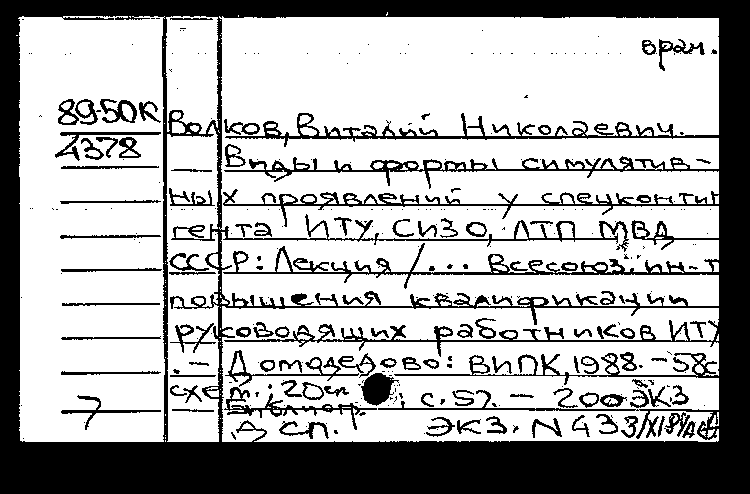 врач.
89-50К
4378
Волков, Виталий Николаевич.
Виды и формы симулятив-
ных проявлений у спецконтин
гента ИТУ, СИЗО, ЛТП МВД
СССР: Лекция /... Всесоюз. ин-т
повышения квалификации
руководящих работников ИТУ
.— Домодедово: ВИПК, 1988. — 58с
схем.; 20см
Библиогр.: с. 57. — 200 ЭКЗ
7
ДСП. ЭКЗ. N 433